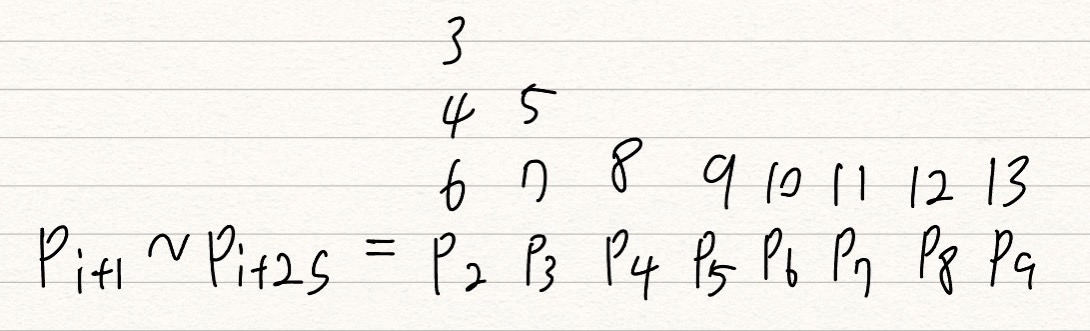 3
4 5
6 7 8 9 10 11 12 13
P_{i+1} ~ P_{i+2S} = P_2 P_3 P_4 P_5 P_6 P_7 P_8 P_9